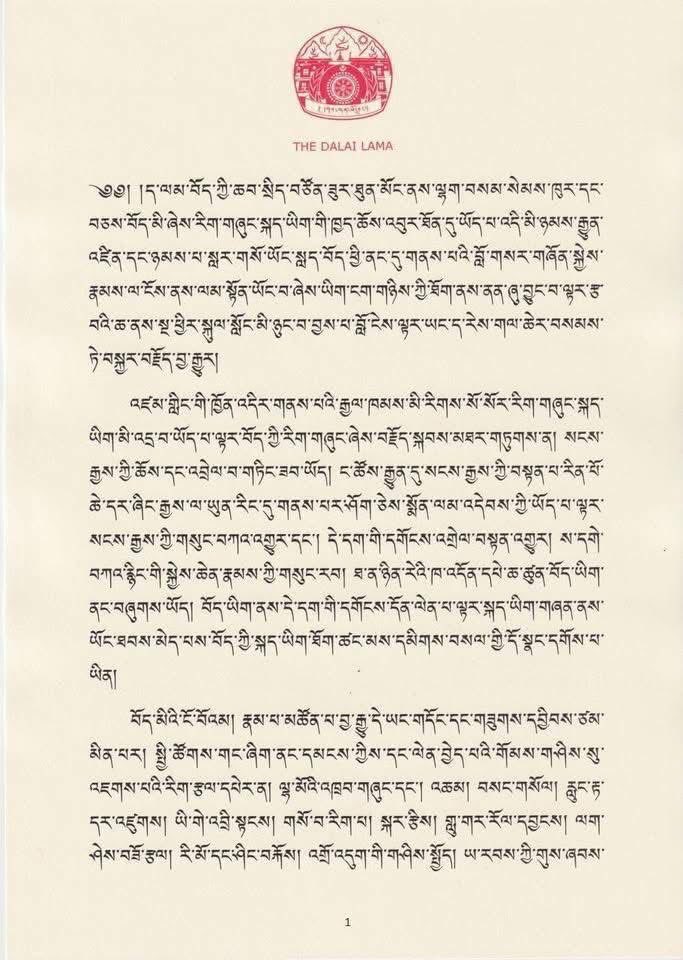 THE DALAI LAMA
༄༅། །ད་ལམ་བོད་ཀྱི་ཆབ་སྲིད་བཙོན་ཟུར་ཐུན་མོང་ནས་ལྷག་བསམ་སེམས་ཁུར་དང་
བཅས་བོད་མི་ཞེས་རིག་གཞུང་སྐད་ཡིག་གི་ཁྱད་ཆོས་འབུར་ཐོན་དུ་ཡོད་པ་འདི་མི་ཉམས་རྒྱུན་
འཛིན་དང་ཉམས་པ་སླར་གསོ་ཡོང་སླད་བོད་ཕྱི་ནང་དུ་གནས་པའི་བློ་གསར་གཞོན་སྐྱེས་
རྣམས་ལ་ངོས་ནས་ལམ་སྟོན་ཡོང་བ་ཞེས་ཡིག་ངག་གཉིས་ཀྱི་ཐོག་ནས་ནན་ཞུ་བྱུང་བ་ལྟར་རྩ་
བའི་ཆ་ནས་སྔ་ཕྱིར་སྐུལ་སློང་མི་ཉུང་བ་བྱས་པ་བློ་ངེས་ལྟར་ཡང་ད་རེས་གལ་ཆེར་བསམས་
ཏེ་བསྐྱར་བརྗོད་བྱ་རྒྱུར།
འཛམ་གླིང་གི་ཁྱོན་འདིར་གནས་པའི་རྒྱལ་ཁམས་མི་རིགས་སོ་སོར་རིག་གཞུང་སྐད་
ཡིག་མི་འདྲ་བ་ཡོད་པ་ལྟར་བོད་ཀྱི་རིག་གཞུང་ཞེས་བརྗོད་སྐབས་མཐར་གཏུགས་ན། སངས་
རྒྱས་ཀྱི་ཆོས་དང་འབྲེལ་བ་གཏིང་ཟབ་ཡོད། ང་ཚོས་རྒྱུན་དུ་སངས་རྒྱས་ཀྱི་བསྟན་པ་རིན་པོ་
ཆེ་དར་ཞིང་རྒྱས་ལ་ཡུན་རིང་དུ་གནས་པར་ཤོག་ཅེས་སྨོན་ལམ་འདེབས་ཀྱི་ཡོད་པ་ལྟར་
སངས་རྒྱས་ཀྱི་གསུང་བཀའ་འགྱུར་དང༌། དེ་དག་གི་དགོངས་འགྲེལ་བསྟན་འགྱུར། ས་དགེ་
བཀའ་རྙིང་གི་སྐྱེས་ཆེན་རྣམས་ཀྱི་གསུང་རབ། ཐ་ན་ཉིན་རེའི་ཁ་འདོན་དཔེ་ཆ་ཚུན་བོད་ཡིག་
ནང་བཞུགས་ཡོད། བོད་ཡིག་ནས་དེ་དག་གི་དགོངས་དོན་ལེན་པ་ལྟར་སྐད་ཡིག་གཞན་ནས་
ཡོང་ཐབས་མེད་པས་བོད་ཀྱི་སྐད་ཡིག་ཐོག་ཚང་མས་དམིགས་བསལ་གྱི་དོ་སྣང་དགོས་པ་
ཡིན།
བོད་མིའི་ངོ་བོའམ། རྣམ་པ་མཚོན་པ་བྱ་རྒྱུ་དེ་ཡང་གདོང་དང་གཟུགས་དབྱིབས་ཙམ་
མིན་པར། སྤྱི་ཚོགས་གང་ཞིག་ནང་དམངས་ཀྱིས་དང་ལེན་བྱེད་པའི་གོམས་གཤིས་སུ་
འཇགས་པའི་རིག་རྩལ་དཔེར་ན། ལྷ་མོའི་འཁྲབ་གཞུང་དང༌། འཆམ། བསང་གསོལ། རླུང་རྟ་
དར་འཛུགས། ཡི་གེ་འབྲི་སྟངས། གསོ་བ་རིག་པ། སྐར་རྩིས། གླུ་གར་རོལ་དབྱངས། ལག་
ཤེས་བཟོ་རྩལ། རི་མོ་དང་ཤིང་བརྐོས། འགྲོ་འདུག་གི་གཤིས་སྤྱོད། ཡ་རབས་ཀྱི་གུས་ཞབས་
1